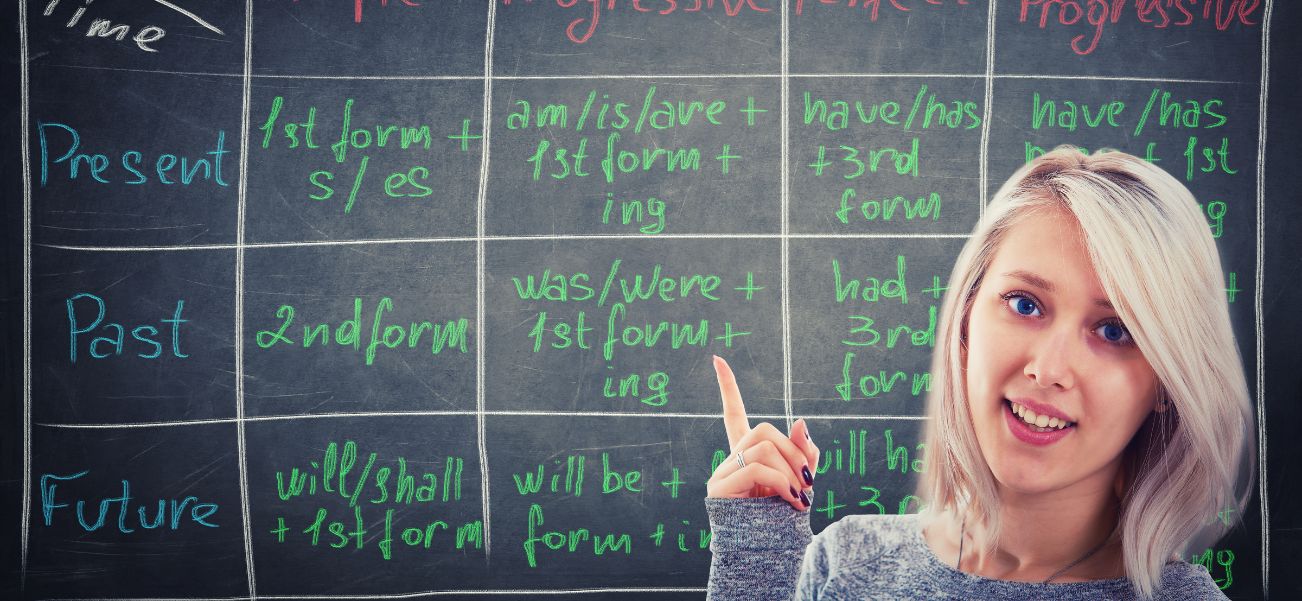 Time Progressive Perfect Progressive
Present
1st form +
s/es
am/is/are +
1st form +
ing
have/has
+3rd
form
have/has
+ 1st
Past
2nd form
was/were +
1st form +
ing
had +
3rd
form
Future
will/shall
+ 1st form
will be +
form + in
will ha
+ 3r
ing